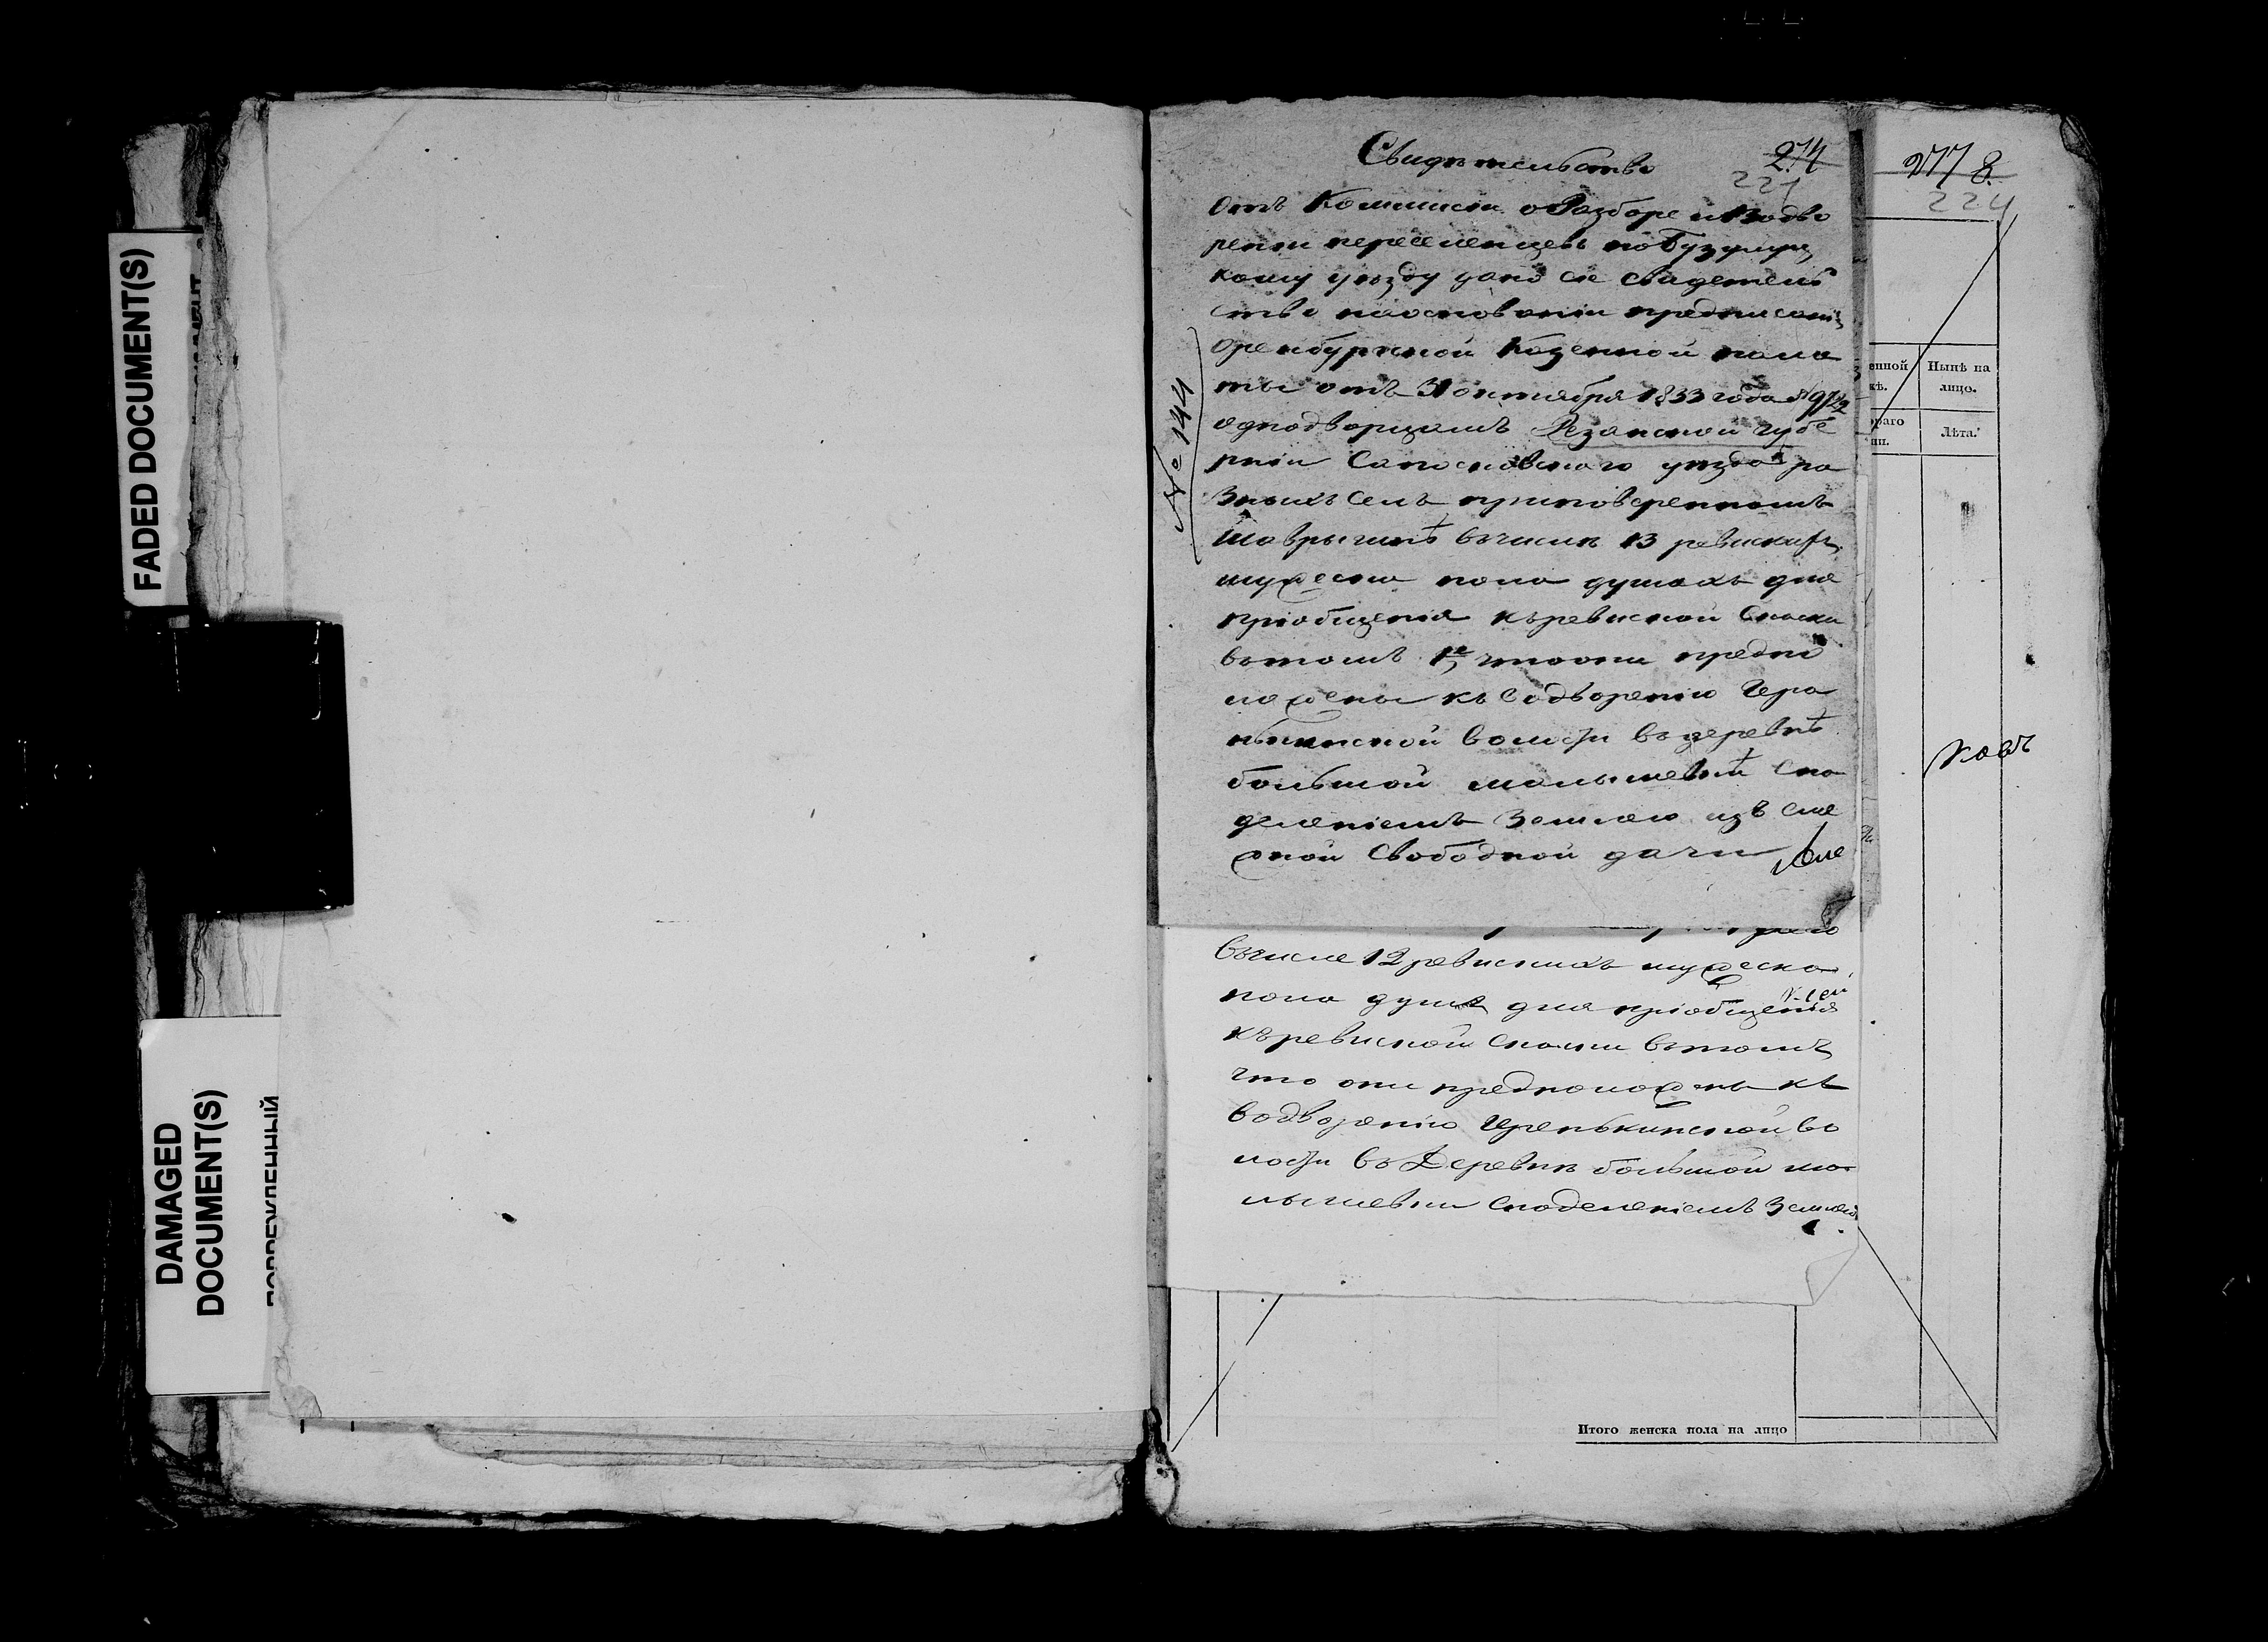 FADED DOCUMENT(S)
DAMAGED
DOCUMENT(S)
ПОВРЕЖДЕННЫЙ
Свидѣтельство
274
221
отъ Коммисіи о Разборе и Водво
рении переселенцевъ по Бузулуц
кому уѣзду дано сіе свидетель
ство на основаніи предписани
оренбургской Казенной пала
ты отъ 31 октября 1833 года №
однодворцамъ Резанской губе
рніи Сапожковскаго уезда ра
зныхъ селъ при поверенномъ
въ числѣ 13 ревискихъ
мужеска пола душахъ для
пріобщенія къ ревиской Скаски
въ томъ 1е что они предпо
ложены къ водворению Гера
нькинской волости въ деревнѣ
большой малышевкѣ сна
делениемъ Землею изъ сме
жной Свободной дачи
№ 144
въ числе 12 ревискихъ мужеска
пола душъ для пріобщения
къ ревиской Скаски въ томъ
что они предположены къ
водворенію Гереньскинской во
лости въ Деревнѣ большой ма
лышевки снаделениемъ Землею
277 8.
224
енной
кѣ.
Нынѣ на
лицо.
раго
ии.
Лѣта.
ковъ
Итого женска пола на лицо